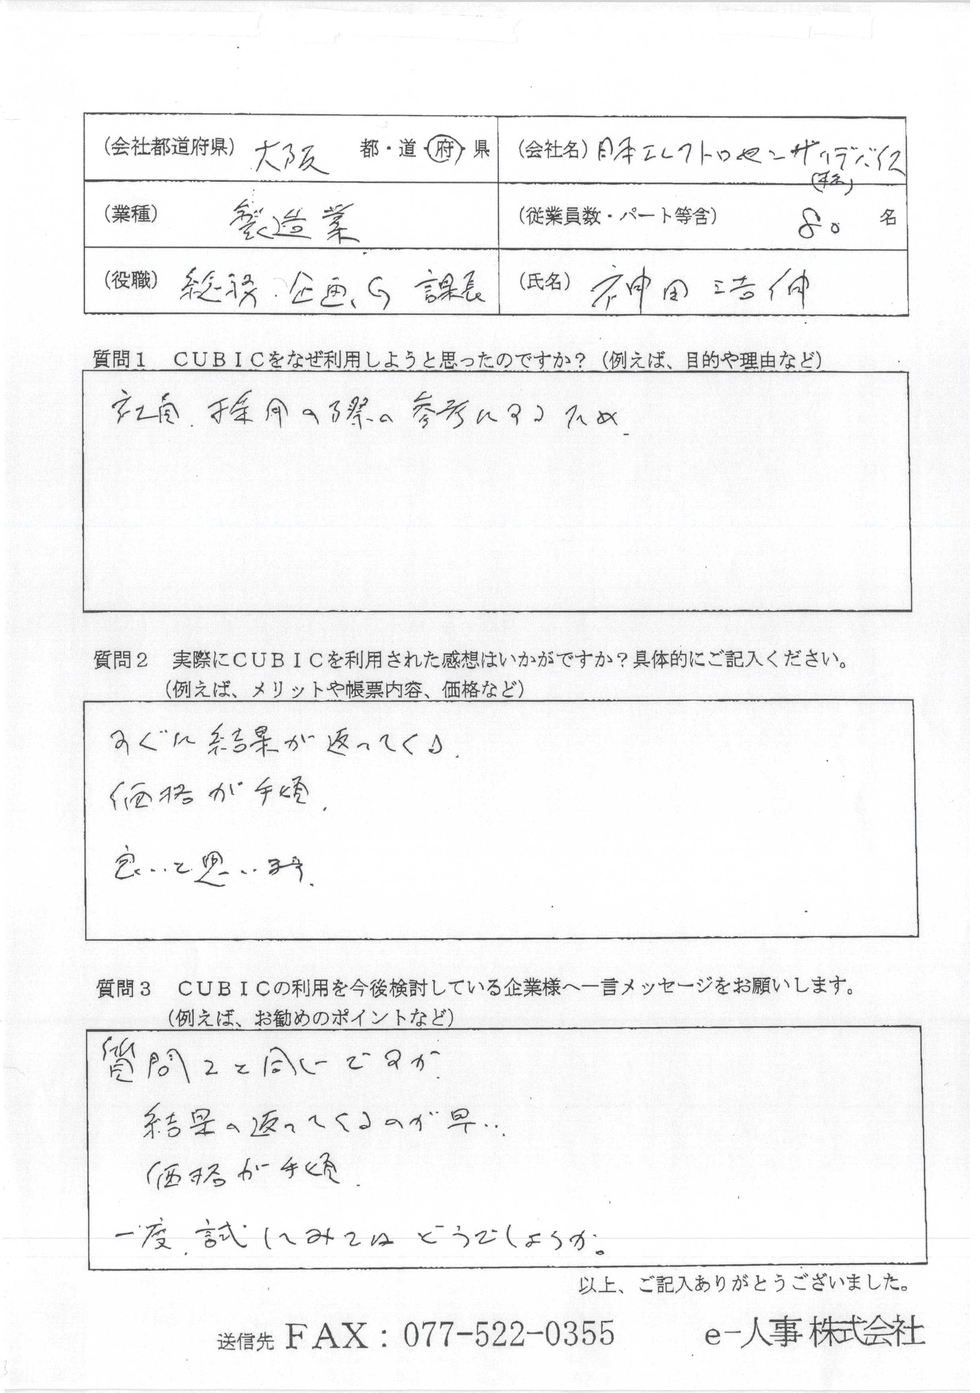 (会社都道府県) 大阪 都・道・府・県 (会社名) 日本エレクトロセンサリデバイス(株)
(業種) 製造業 (従業員数・パート等含) 80 名
(役職) 総務・企画G 課長 (氏名) 神田 浩伸
質問1 CUBICをなぜ利用しようと思ったのですか?(例えば、目的や理由など)
社員採用の際の参考にするため
質問2 実際にCUBICを利用された感想はいかがですか?具体的にご記入ください。
(例えば、メリットや帳票内容、価格など)
すぐに結果が返ってくる.
価格が手頃.
良いと思います.
質問3 CUBICの利用を今後検討している企業様へ一言メッセージをお願いします。
(例えば、お勧めのポイントなど)
質問2と同じですが
結果の返ってくるのが早い.
価格が手頃.
一度、試してみてはどうでしょうか。
以上、ご記入ありがとうございました。
送信先 FAX:077-522-0355 e-人事株式会社